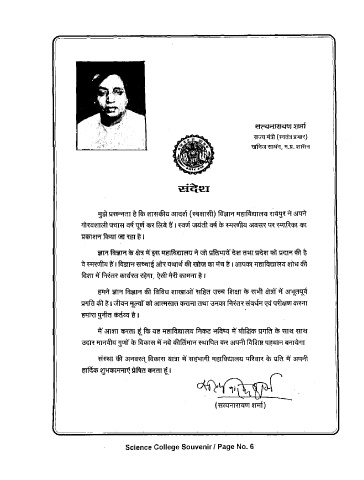 सत्यनारायण शर्मा
राज्य मंत्री (स्वतंत्र प्रभार)
खनिज साधन, म.प्र. शासन
संदेश
मुझे प्रसन्नता है कि शासकीय आदर्श (स्वशासी) विज्ञान महाविद्यालय रायपुर ने अपने
गौरवशाली पचास वर्ष पूर्ण कर लिये हैं। स्वर्ण जयंती वर्ष के स्मरणीय अवसर पर स्मारिका का
प्रकाशन किया जा रहा है।
ज्ञान विज्ञान के क्षेत्र में इस महाविद्यालय ने जो प्रतिभायें देश तथा प्रदेश को प्रदान की है
वे स्मरणीय हैं। विज्ञान सच्चाई और यथार्थ की खोज का मंच है। आपका महाविद्यालय शोध की
दिशा में निरंतर कार्यरत रहेगा, ऐसी मेरी कामना है।
हमने ज्ञान विज्ञान की विविध शाखाओं सहित उच्च शिक्षा के सभी क्षेत्रों में अभूतपूर्व
प्रगति की है। जीवन मूल्यों को आत्मसात कराना तथा उनका निरंतर संवर्धन एवं परीक्षण करना
हमारा पुनीत कर्तव्य है।
मैं आशा करता हूँ कि यह महाविद्यालय निकट भविष्य में बौद्धिक प्रगति के साथ साथ
उदार मानवीय गुणों के विकास में नये कीर्तिमान स्थापित कर अपनी विशिष्ट पहचान बनायेगा
संस्था की अनवरत् विकास यात्रा में सहभागी महाविद्यालय परिवार के प्रति मैं अपनी
हार्दिक शुभकामनाएं प्रेषित करता हूँ।
(सत्यनारायण शर्मा)
Science College Souvenir / Page No. 6